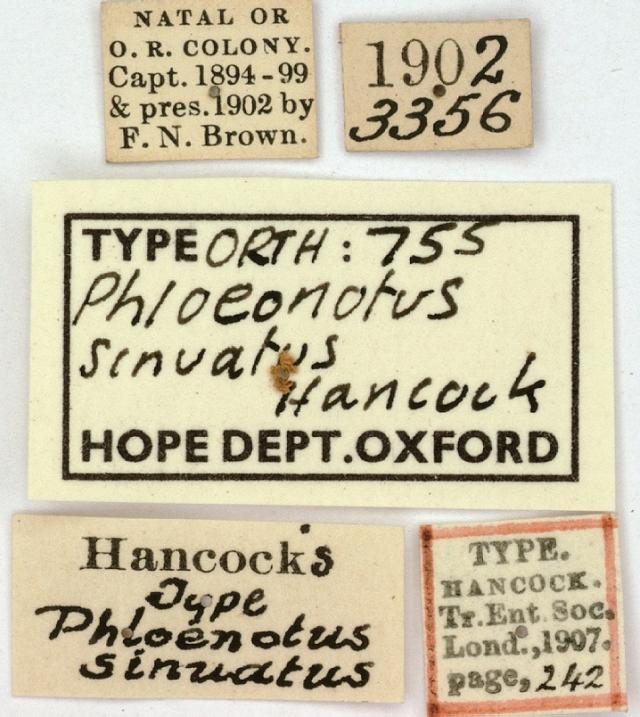 NATAL OR
O. R. COLONY.
Capt. 1894-99
& pres. 1902 by
F. N. Brown.
1902
3356
TYPE ORTH: 755
Phloeonotus
sinuatus
Hancock
HOPE DEPT. OXFORD
Hancock's
Type
Phloenotus
sinuatus
TYPE.
HANCOCK.
Tr. Ent. Soc.
Lond., 1907.
page, 242